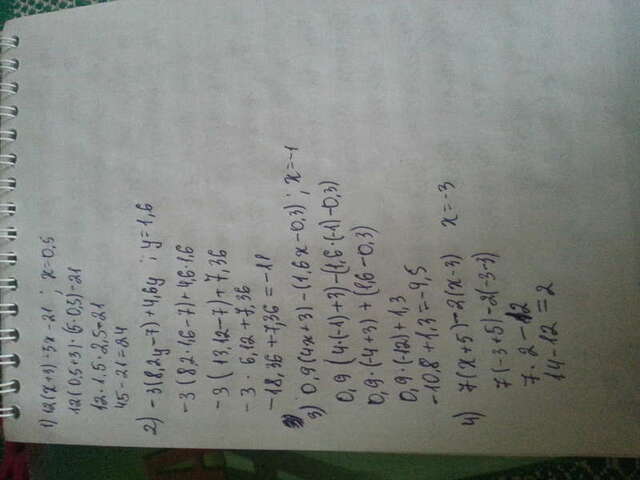 1) 12(x+3)·5x-21; x=0,5
12(0,5+3)·(5·0,5)-21
12·1,5·2,5-21
45-21=24
2) -3(8,2y-7)+4,6y; y=1,6
-3(8,2·1,6-7)+4,6·1,6
-3(13,12-7)+7,36
-3·6,12+7,36
-18,36+7,36=-11
3) 0,9(4x+3)-(1,6x-0,3); x=-1
0,9(4·(-1)+3)-(1,6·(-1)-0,3)
0,9·(-4+3)+(1,6-0,3)
0,9·(-12)+1,3
-10,8+1,3=-9,5
4) 7(x+5)-2(x-3) x=-3
7(-3+5)-2(-3-3)
7·2-12
14-12=2